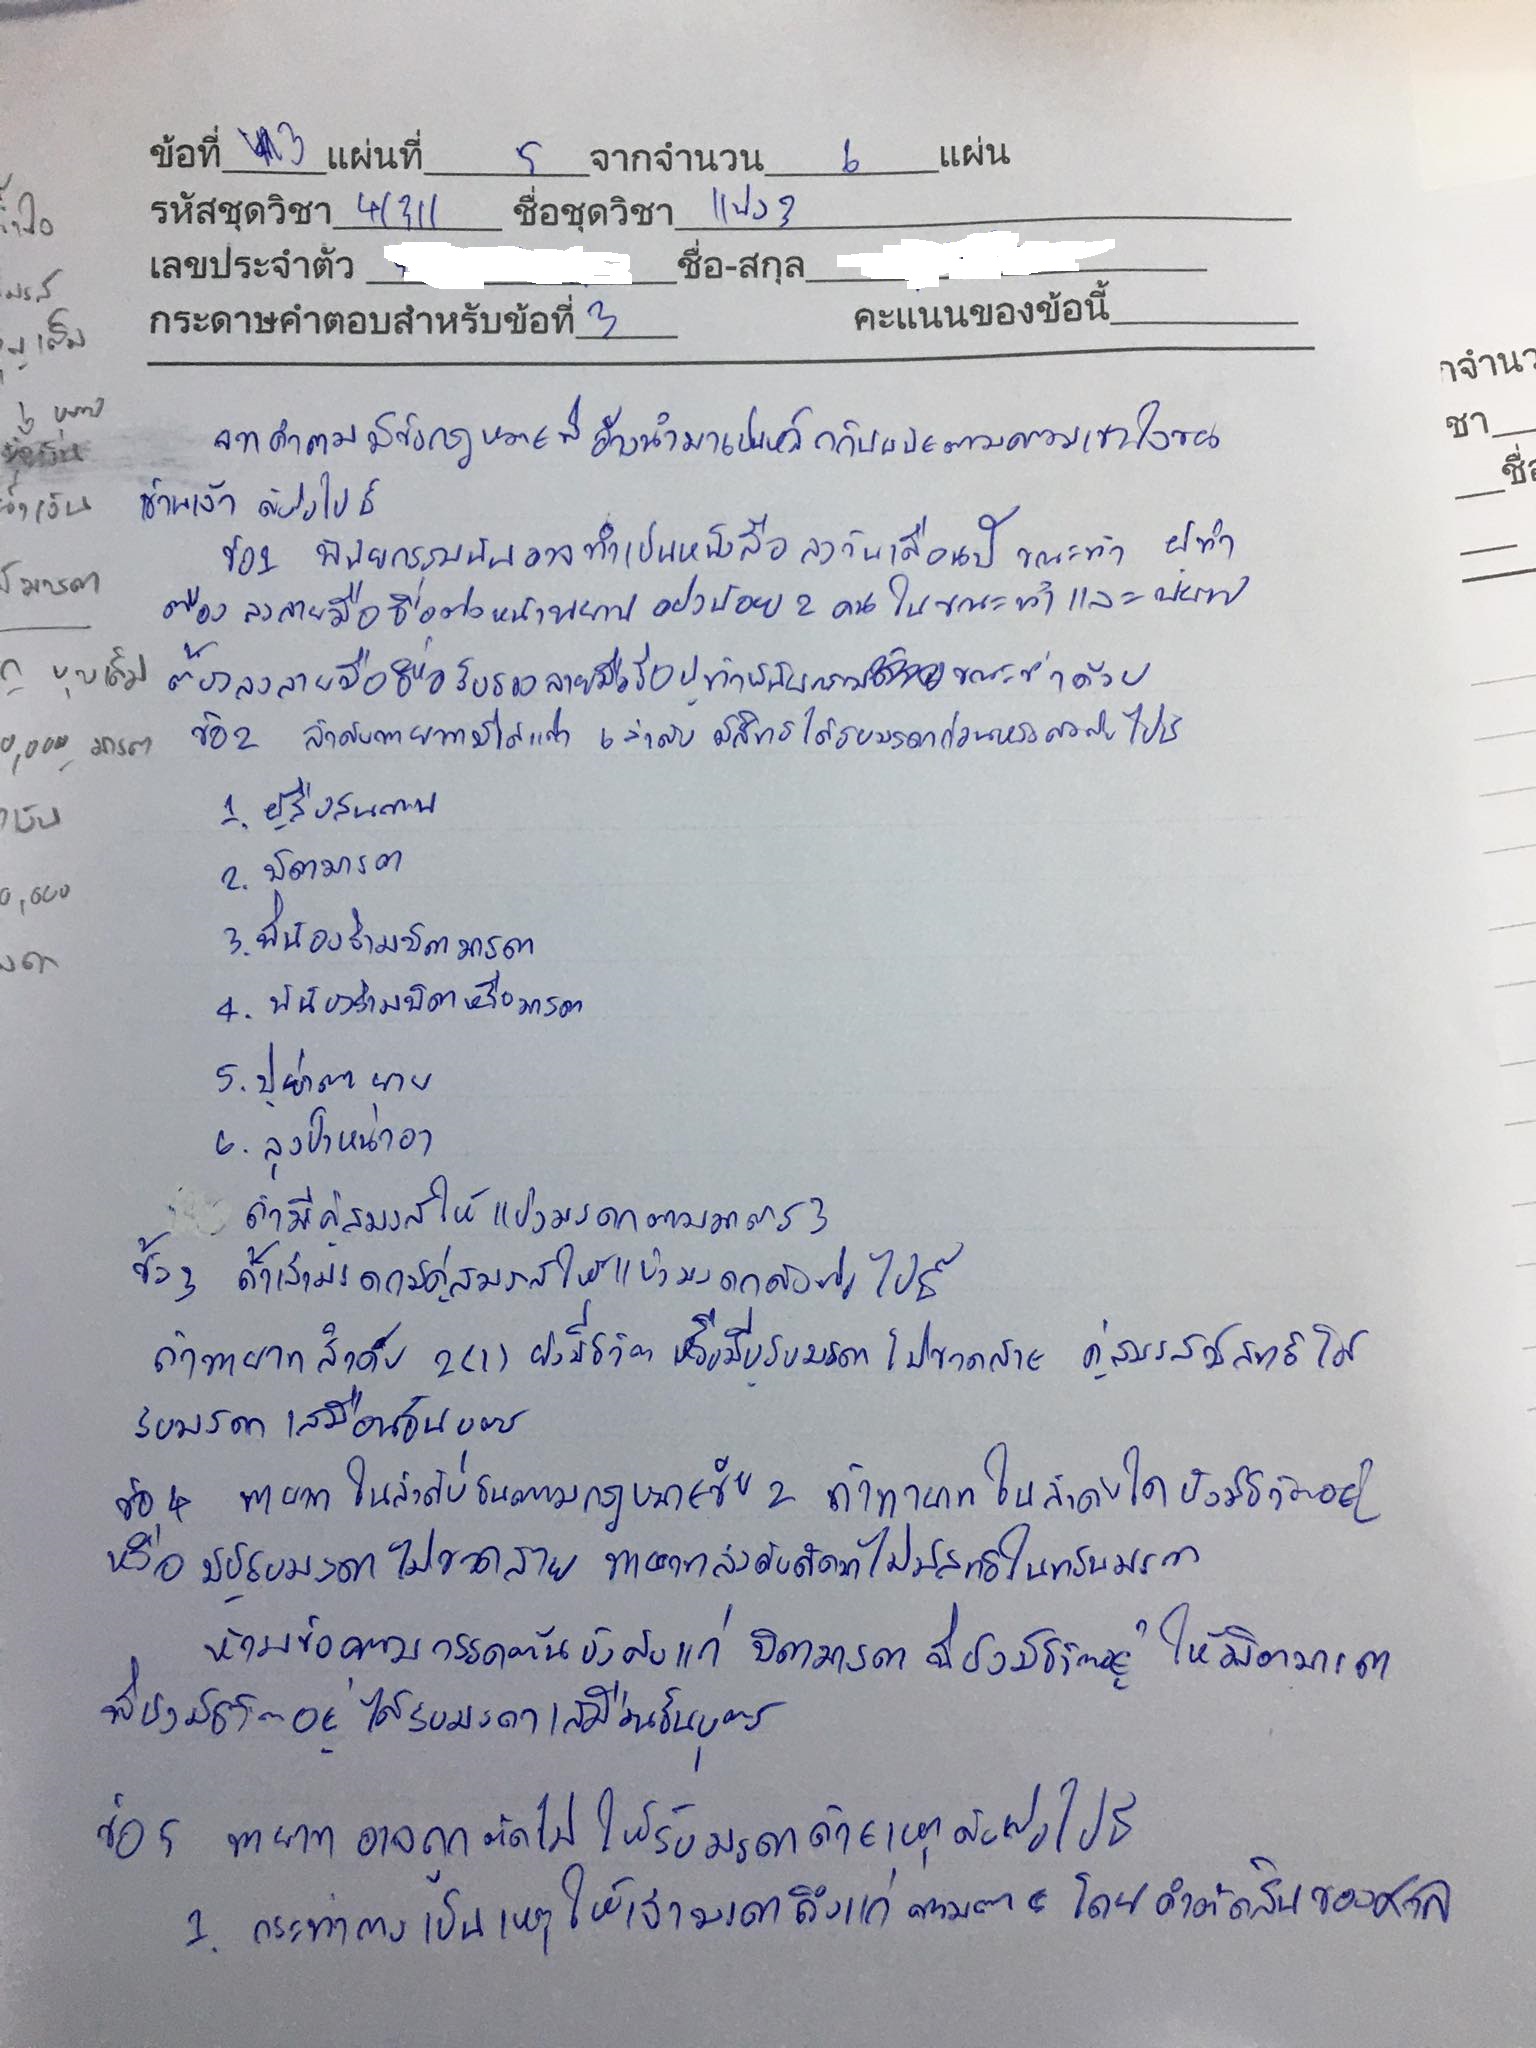 ข้อที่ 3 แผ่นที่ 5 จากจำนวน 6 แผ่น
รหัสชุดวิชา 41311 ชื่อชุดวิชา แพ่ง 3
เลขประจำตัว ชื่อ-สกุล
กระดาษคำตอบสำหรับข้อที่ 3 คะแนนของข้อนี้
จากคำถามมีข้อกฎหมายที่อ้างนำมาเป็นหลัก ตามความเข้าใจของ
ข้าพเจ้า ดังต่อไปนี้
ข้อ 1 พินัยกรรมนั้นอาจทำเป็นหนังสือ ลงวันเดือนปี ขณะทำ ผู้ทำ
ต้องลงลายมือชื่อต่อหน้าพยานอย่างน้อย 2 คน ในขณะทำ และพยาน
ต้องลงลายมือชื่อรับรองลายมือชื่อผู้ทำพินัยกรรม ขณะทำด้วย
ข้อ 2 ลำดับทายาทมีได้แก่ 6 ลำดับ มีสิทธิได้รับมรดกก่อนหลังดังต่อไปนี้
1. ผู้สืบสันดาน
2. บิดามารดา
3. พี่น้องร่วมบิดามารดา
4. พี่น้องร่วมบิดาหรือมารดา
5. ปู่ย่าตายาย
6. ลุงป้าหน้าอา
ถ้ามีคู่สมรสให้แบ่งมรดกตามมาตร 3
ข้อ 3 ถ้าเจ้ามรดกมีคู่สมรสให้แบ่งมรดกดังต่อไปนี้
ถ้าทายาทลำดับ 2(1) ยังมีชีวิต หรือมีผู้รับมรดกไม่ขาดสาย คู่สมรสมีสิทธิได้
รับมรดกเสมือนชั้นบุตร
ข้อ 4 ทายาทในลำดับชั้นตามกฎหมายข้อ 2 ถ้าทายาทในลำดับใดยังมีชีวิตอยู่
หรือมีผู้รับมรดกไม่ขาดสาย ทายาทลำดับถัดไปไม่มีสิทธิในทรัพย์มรดก
ห้ามข้อความวรรคต้นบังคับแก่ บิดามารดา ที่ยังมีชีวิตอยู่ ให้บิดามารดา
ที่ยังมีชีวิตอยู่ ได้รับมรดกเสมือนชั้นบุตร
ข้อ 5 ทายาทอาจถูกตัดไม่ให้รับมรดกด้วยเหตุดังต่อไปนี้
1. กระทำการเป็นเหตุให้เจ้ามรดกถึงแก่ความตาย โดยคำตัดสินของศาล